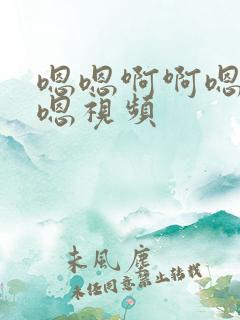 嗯嗯啊啊嗯
嗯視頻
未風塵
未經同意禁止轉載